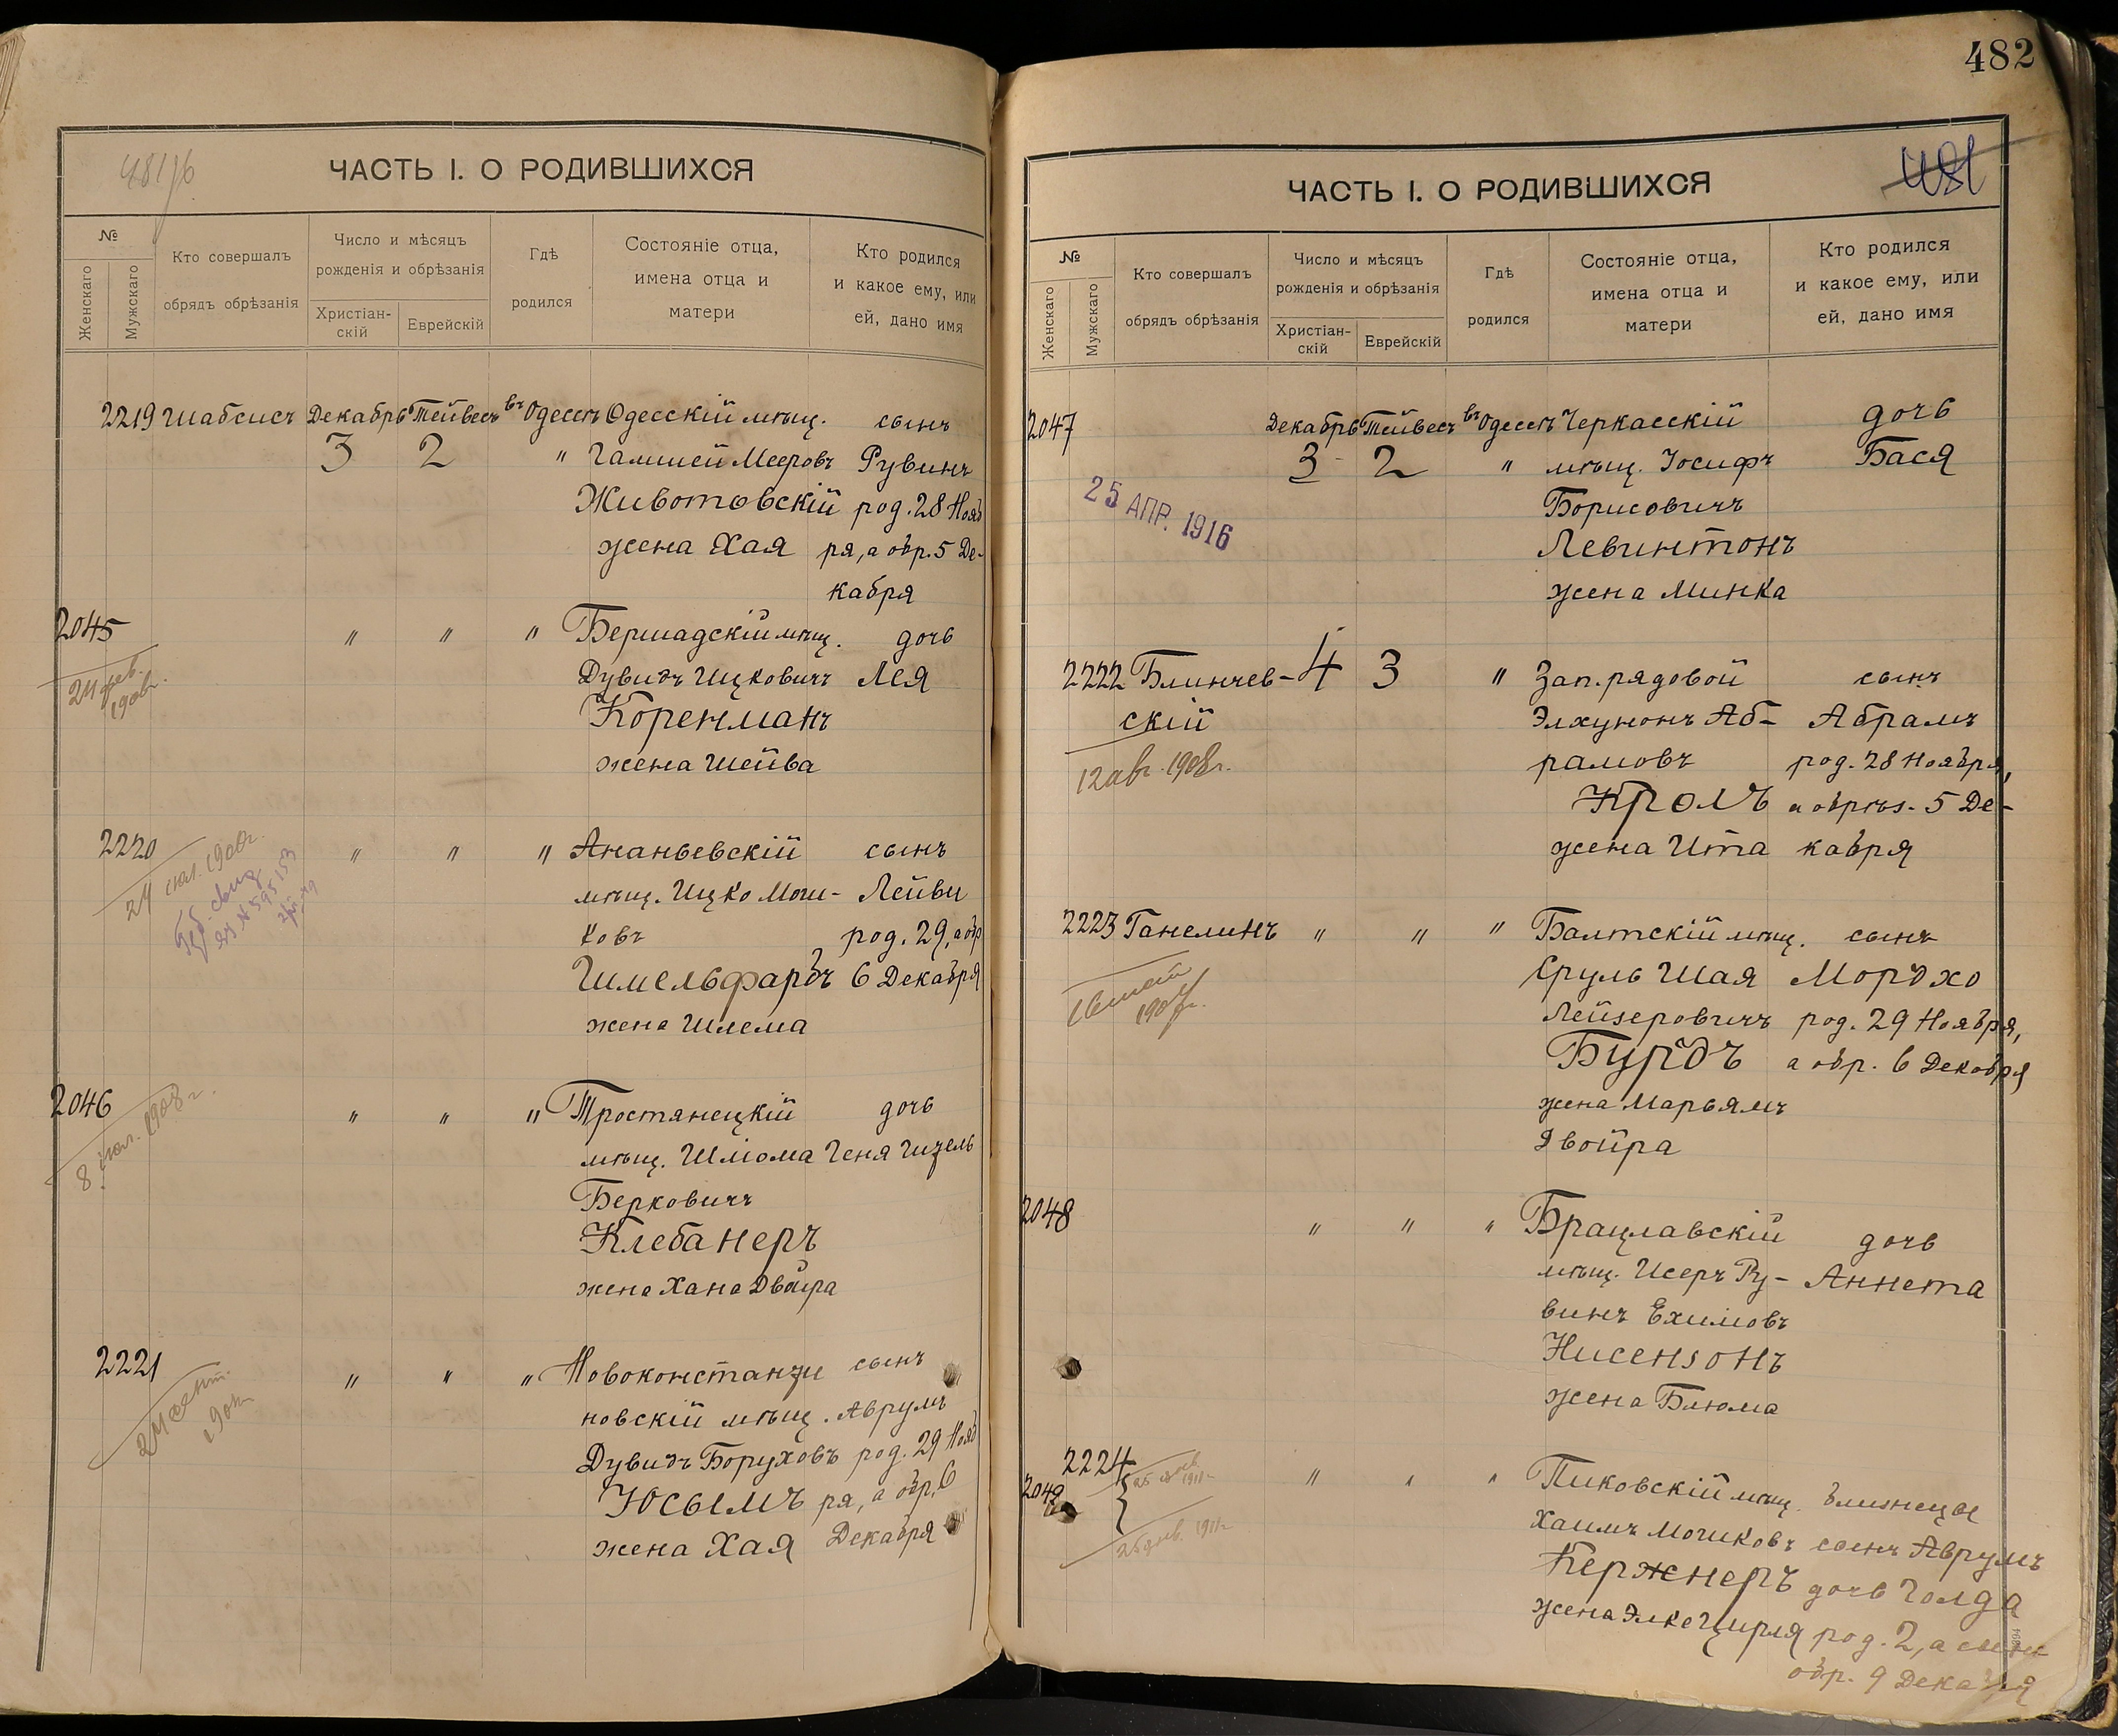 481/б
ЧАСТЬ I. О РОДИВШИХСЯ
№
Женскаго
Мужскаго
Кто совершалъ
обрядъ обрѣзанія
Число и мѣсяцъ
рожденія и обрѣзанія
Христіан-
скій
Еврейскій
Гдѣ
родился
Состояніе отца,
имена отца и
матери
Кто родился
и какое ему, или
ей, дано имя
2219 Шабсисъ Декабрь Тейвесъ въ Одессѣ Одесскій мѣщ. сынъ
3 2 " Гамшей Мееровъ Рувинъ
Животовскій род. 28 Нояб
жена Хая ря, а обр. 5 Де-
кабря
2045 " " " Бершадскій мѣщ. дочь
Дувидъ Ицковичъ Лея
Коренманъ
жена Шейва
2220 " " " Ананьевскій сынъ
мѣщ. Ицко Мош- Лейви
ковъ род. 29, а обр
Гимельфарбъ 6 Декабря
жена Шлема
2046 " " " Тростянецкій дочь
мѣщ. Шліома Геня Гизель
8 іюл. 1908 г.
Берковичъ
Клебанеръ
жена Хана Двойра
2221 " " " Новоконстанти сынъ
новскій мѣщ. Аврумъ
24 сент.
Дувидъ Боруховъ род. 29 Нояб
Юсымъ ря, а обр. 6
жена Хая Декабря
482
481
ЧАСТЬ I. О РОДИВШИХСЯ
№
Женскаго
Мужскаго
Кто совершалъ
обрядъ обрѣзанія
Число и мѣсяцъ
рожденія и обрѣзанія
Христіан-
скій
Еврейскій
Гдѣ
родился
Состояніе отца,
имена отца и
матери
Кто родился
и какое ему, или
ей, дано имя
2047 Декабрь Тейвесъ въ Одессѣ Черкасскій дочь
3 2 " мѣщ. Іосифъ Бася
25 АПР. 1916
Борисовичъ
Левинтонъ
жена Минка
2222 Блинчев- 4 3 " Зап. рядовой сынъ
скій Элхунонъ Аб- Абрамъ
12 авг. 1908 г.
рамовъ род. 28 Ноября,
Кролъ а обрѣз. 5 Де-
жена Ита кабря
2223 Ганелинъ " " " Балтскій мѣщ. сынъ
Сруль Шая Мордхо
Лейзеровичъ род. 29 Ноября,
Бурдъ а обр. 6 Декабря
жена Марьямъ
Двойра
2048 " " " Брацлавскій дочь
мѣщ. Исеръ Ру- Аннета
винъ Ехимовъ
Нисензонъ
жена Блюма
2224 " " " Пиковскій мѣщ. близнецы
2049 Хаимъ Мошковъ сынъ Аврумъ
Кержнеръ дочь Голда
жена Элке Цирля род. 2, а сынъ
обр. 9 Декабря